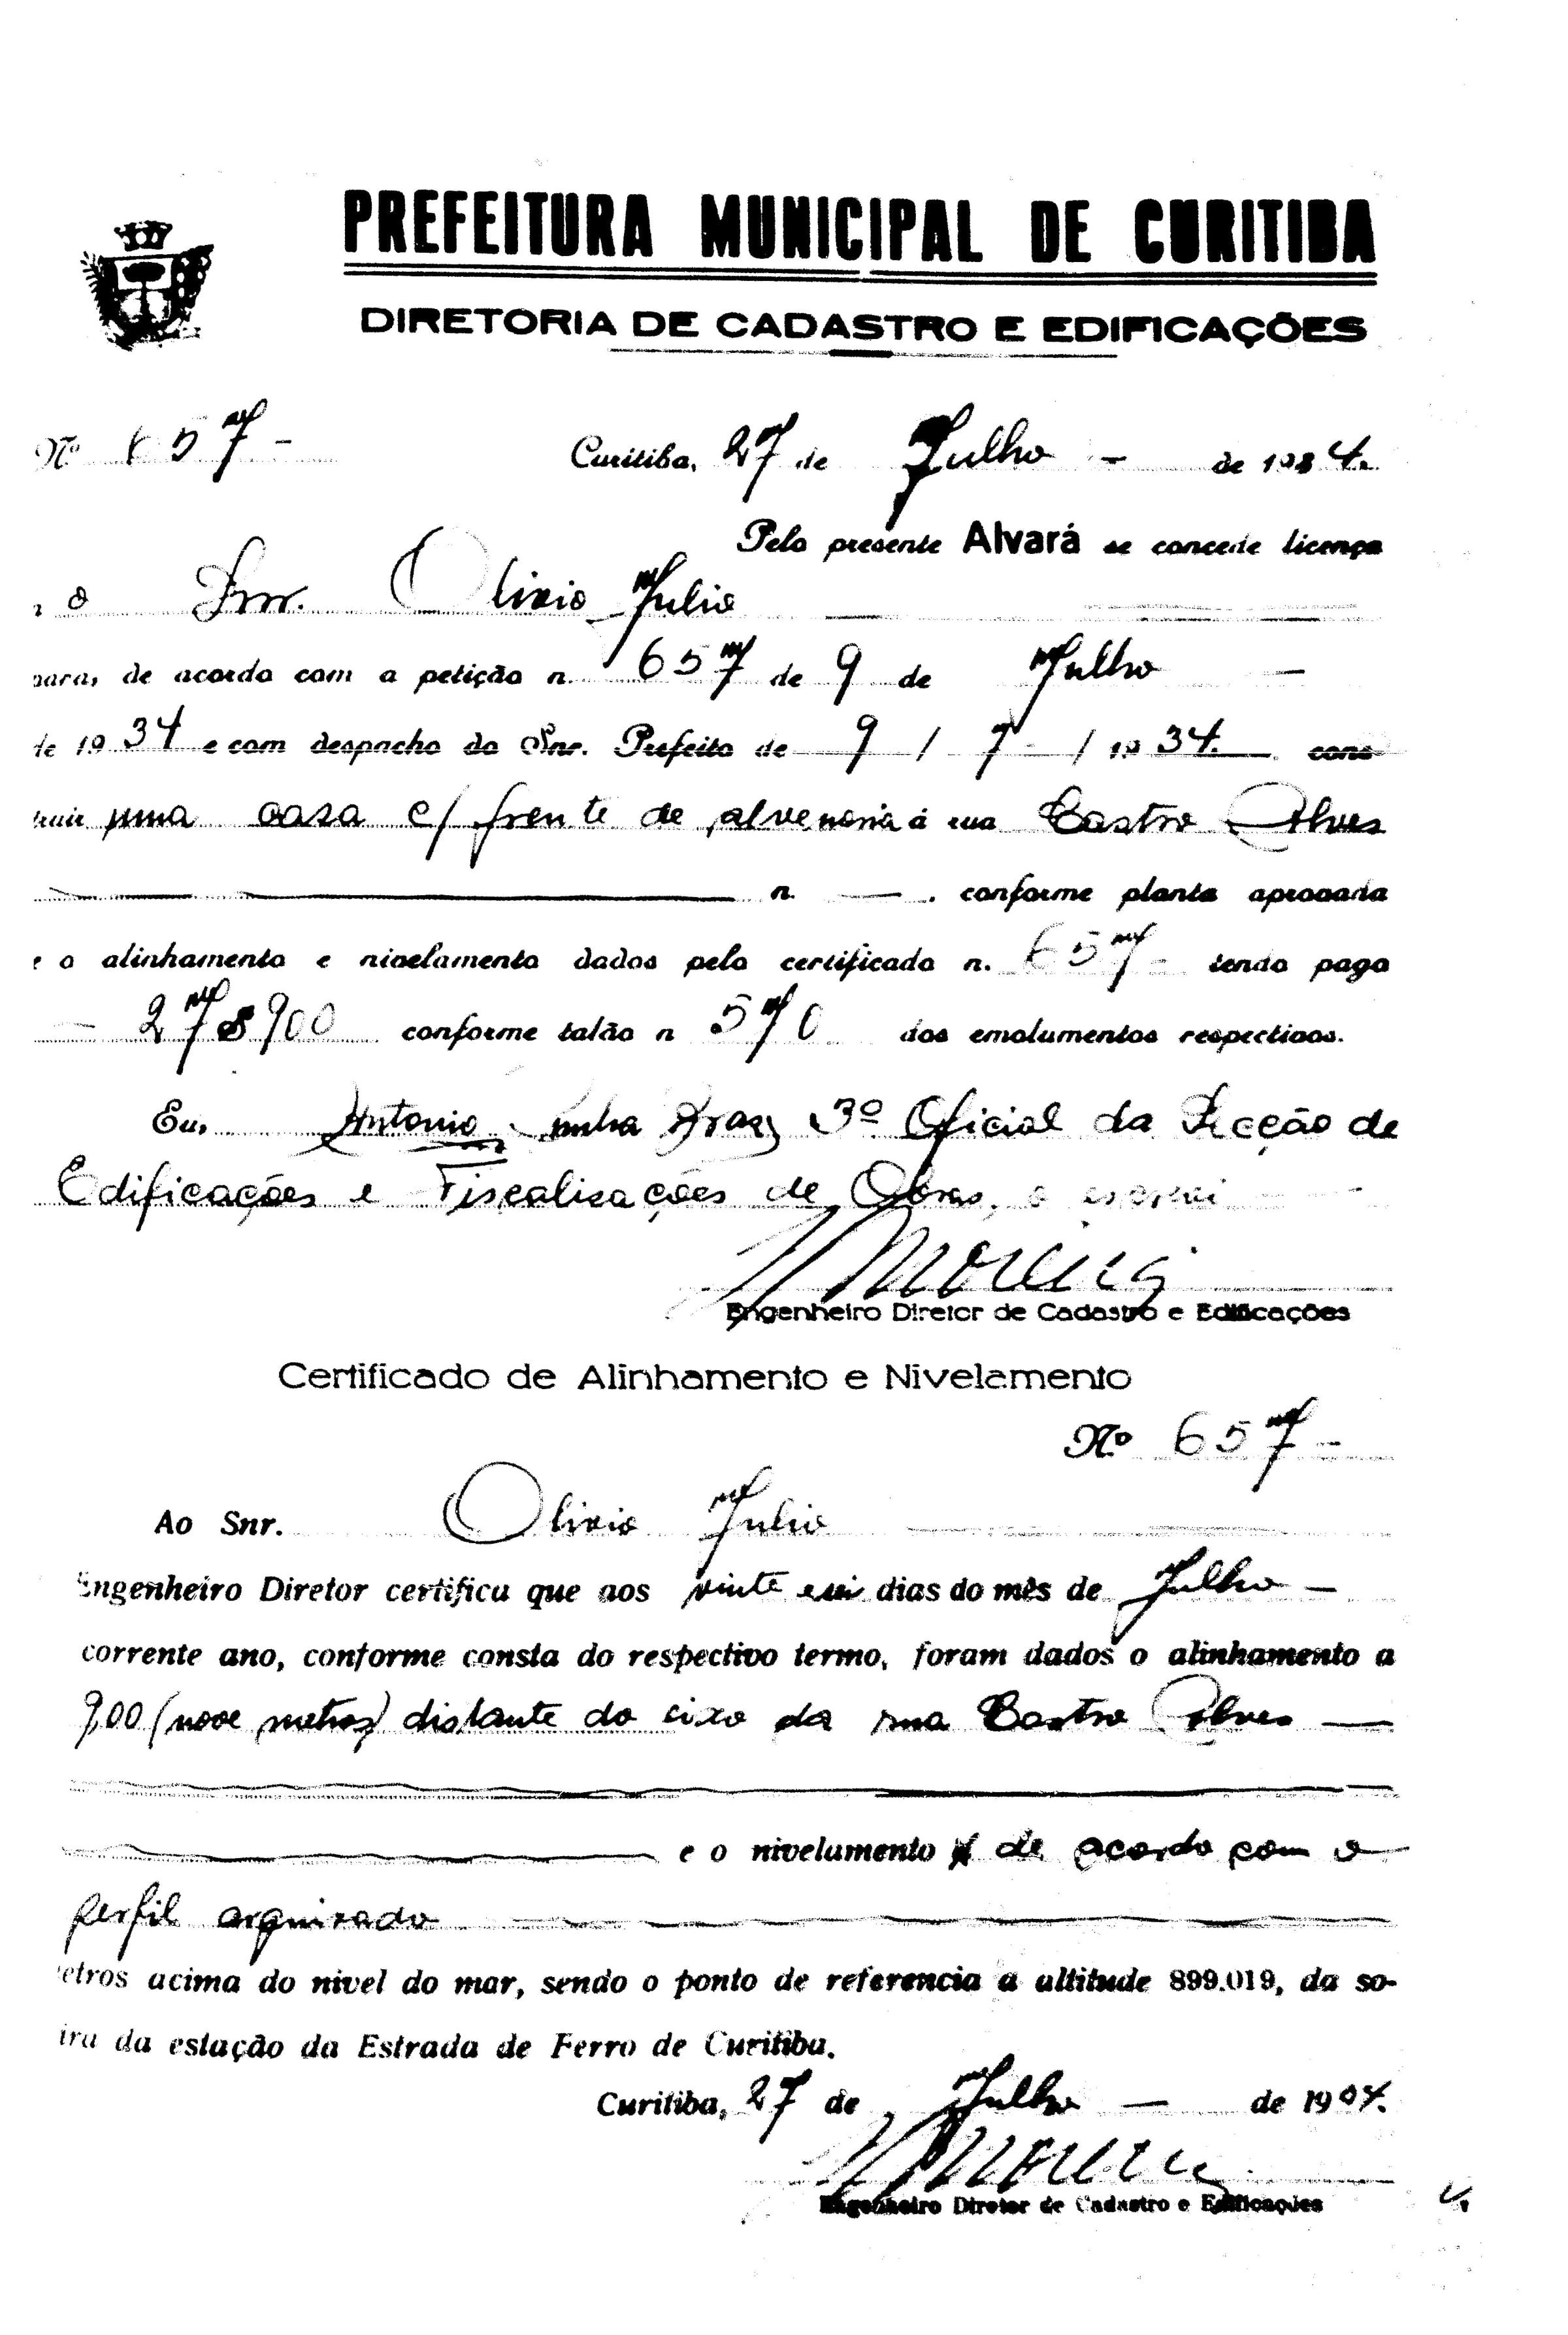 PREFEITURA MUNICIPAL DE CURITIBA
DIRETORIA DE CADASTRO E EDIFICAÇÕES
Nº 657 -
Curitiba, 27 de Julho - de 1934.
Pelo presente Alvará se concede licença
o Snr. Olivio Julio
de acordo com a petição n. 657 de 9 de Julho -
de 1934 e com despacho do Snr. Prefeito de 9 / 7 / 1934. cons
truir uma casa c/ frente de alvenaria á rua Castro Alves
n. — . conforme planta aprovada
e o alinhamento e nivelamento dados pelo certificado n. 657 - tendo pago
- 27$900 conforme talão n 570 dos emolumentos respectivos.
Eu, Antonio 3º Oficial da Secção de
Edificações e Fiscalisações de Obras, o escrevi
Engenheiro Diretor de Cadastro e Edificações
Certificado de Alinhamento e Nivelamento
Nº 657 -
Ao Snr. Olivio Julio
Engenheiro Diretor certifica que aos vinte e dias do mês de Julho -
corrente ano, conforme consta do respectivo termo, foram dados o alinhamento a
9,00 (nove metros) distante do eixo da rua Castro Alves —
e o nivelamento de acordo com o
perfil arquivado
etros acima do nivel do mar, sendo o ponto de referencia a altitude 899.019, da so-
ira da estação da Estrada de Ferro de Curitiba.
Curitiba, 27 de Julho - de 1934.
Engenheiro Diretor de Cadastro e Edificações